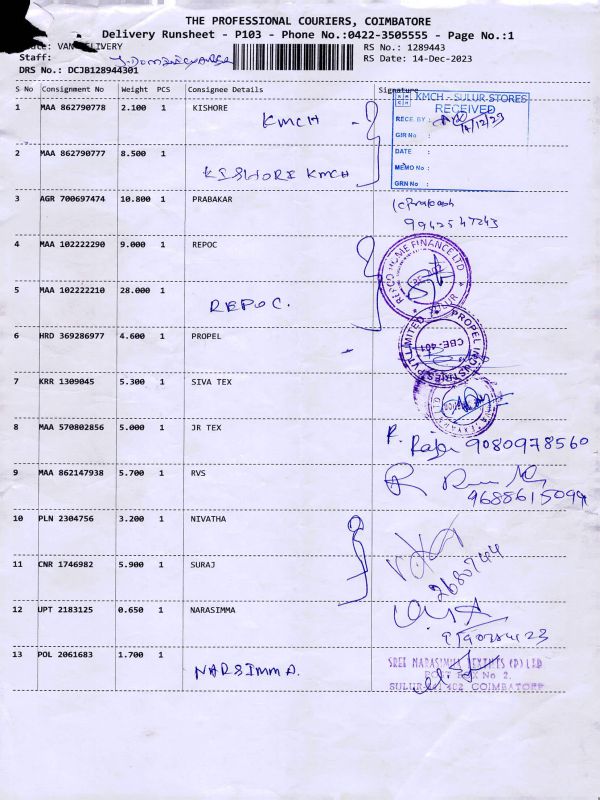 THE PROFESSIONAL COURIERS, COIMBATORE
Delivery Runsheet - P103 - Phone No.:0422-3505555 - Page No.:1
VAN DELIVERY
RS No.: 1289443
Staff:
RS Date: 14-Dec-2023
DRS No.: DCJB128944301
S No Consignment No Weight PCS Consignee Details Signature
1 MAA 862790778 2.100 1 KISHORE
KMCH
KMCH - SULUR STORES
RECEIVED
RECE. BY :
14/12/23
GIR No :
DATE :
MEMO No :
GRN No :
2 MAA 862790777 8.500 1
KISHORE KMCH
3 AGR 700697474 10.800 1 PRABAKAR
9942547243
4 MAA 102222290 9.000 1 REPOC
REPCO HOME FINANCE LTD
SULUR
5 MAA 102222210 28.000 1
REPOC.
6 HRD 369286977 4.600 1 PROPEL
PROPEL INDUSTRIES PVT. LIMITED
CBE-401
7 KRR 1309045 5.300 1 SIVA TEX
8 MAA 570802856 5.000 1 JR TEX
R. Raja 9080978560
9 MAA 862147938 5.700 1 RVS
9688615099
10 PLN 2304756 3.200 1 NIVATHA
11 CNR 1746982 5.900 1 SURAJ
2680744
12 UPT 2183125 0.650 1 NARASIMMA
13 POL 2061683 1.700 1
NARSIMMA.
SREE NARASIMHA TEXTILES (P) LTD
POST BOX No 2.
SULUR-641 402 COIMBATORE